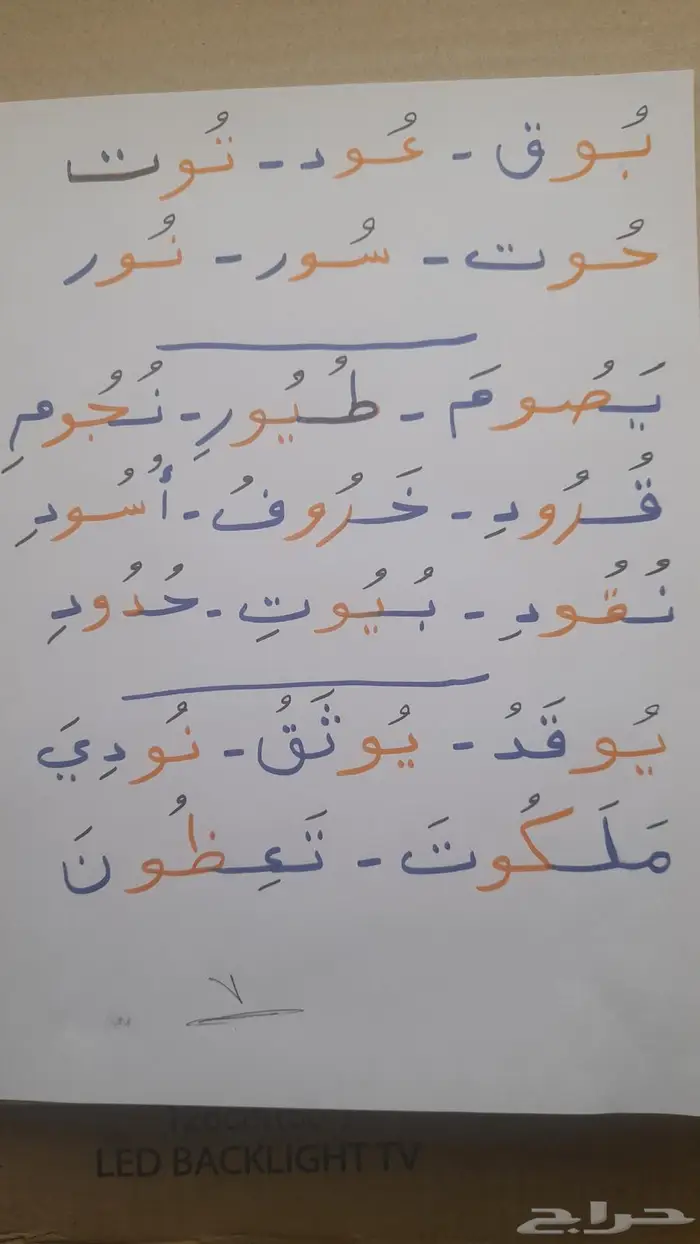 بُوق - عُود - تُوت
حُوت - سُور - نُور
يَصُومَ - طُيُورِ - نُجُومِ
قُرُودِ - خَرُوفُ - أُسُودِ
نُقُودِ - بُيُوتِ - حُدُودِ
يُوقَدُ - يُوثَقُ - نُودِيَ
مَلَكُوتَ - تَعِظُونَ
٧
LED BACKLIGHT TV
حراج